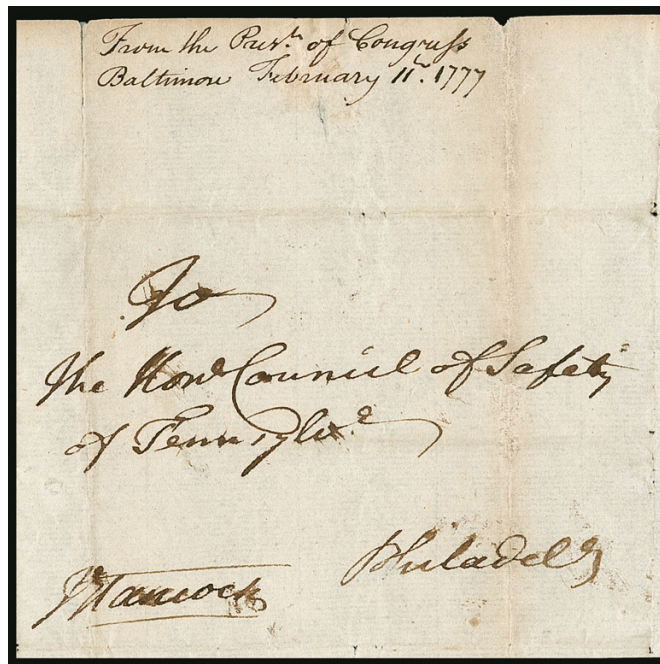 From the Pres.t of Congress
Baltimore February 11th. 1777
To
The Hon.e Council of Safety
of Pennsylv.a
Philadel.a
J Hancock